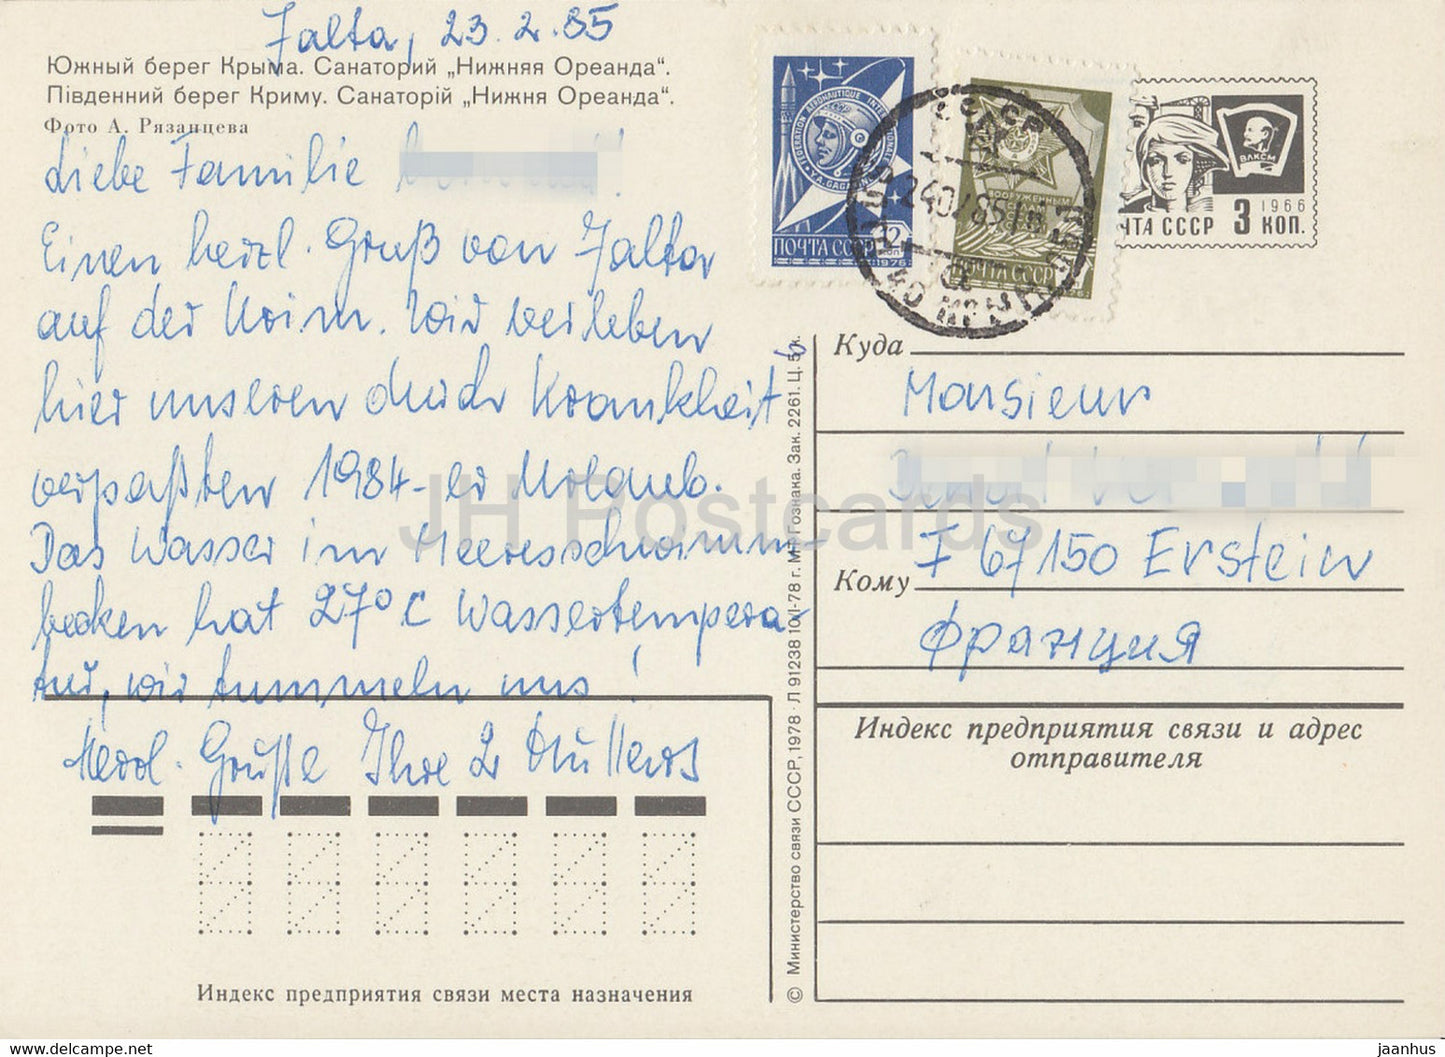 Jalta, 23.2.85
Южный берег Крыма. Санаторий „Нижняя Ореанда“.
Південний берег Криму. Санаторій „Нижня Ореанда“.
Фото А. Рязанцева
Liebe Familie
Einen herzl. Gruß von Jalta
auf der Krim. Wir verleben
hier unseren durch Krankheit
verpaßten 1984-er Urlaub.
Das Wasser im Meeresschwimm
becken hat 27°C Wassertempera-
tur, wir tummeln uns!
Herzl. Grüße Ihre 2 Müllers
Индекс предприятия связи места назначения
FEDERATION AERONAUTIQUE INTERNATIONALE
Y.A. GAGARIN
ПОЧТА СССР 12 КОП
1976
ВООРУЖЕННЫМ
ПОЧТА СССР
СССР
ВЛКСМ
1966
ПОЧТА СССР 3 КОП.
© Министерство связи СССР, 1978 · Л 91238 10/I-78 г. МТ Гознака. Зак. 2261. Ц. 5 к.
Куда
Monsieur
F 67150 Erstein
Кому
Франция
Индекс предприятия связи и адрес
отправителя
JH Postcards
https://www.jh-postcards.com/
jaanhus